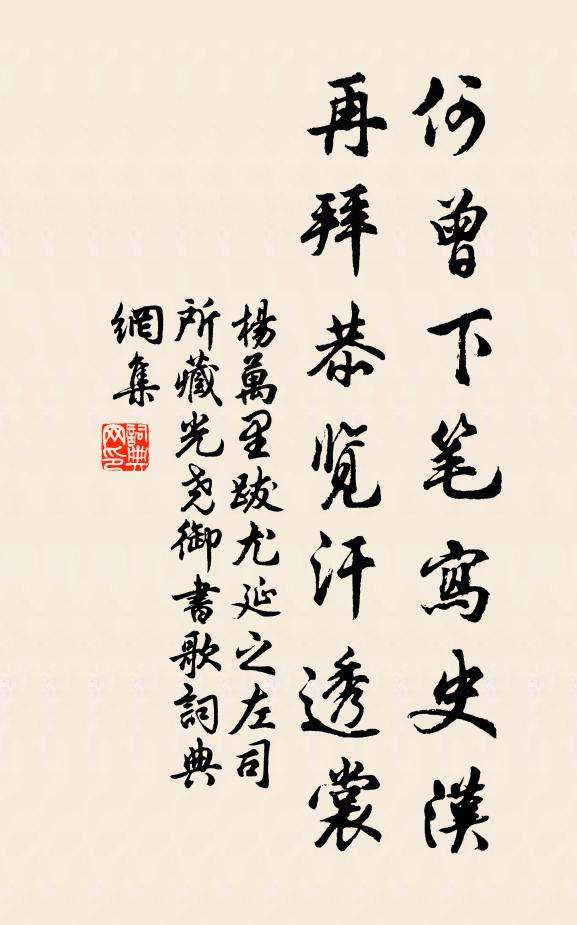 何曾下笔寫史漢
再拜恭览汗透裳
楊萬里跋尤延之左司
所藏光尧御書歌詞典
網集
詞典
网印